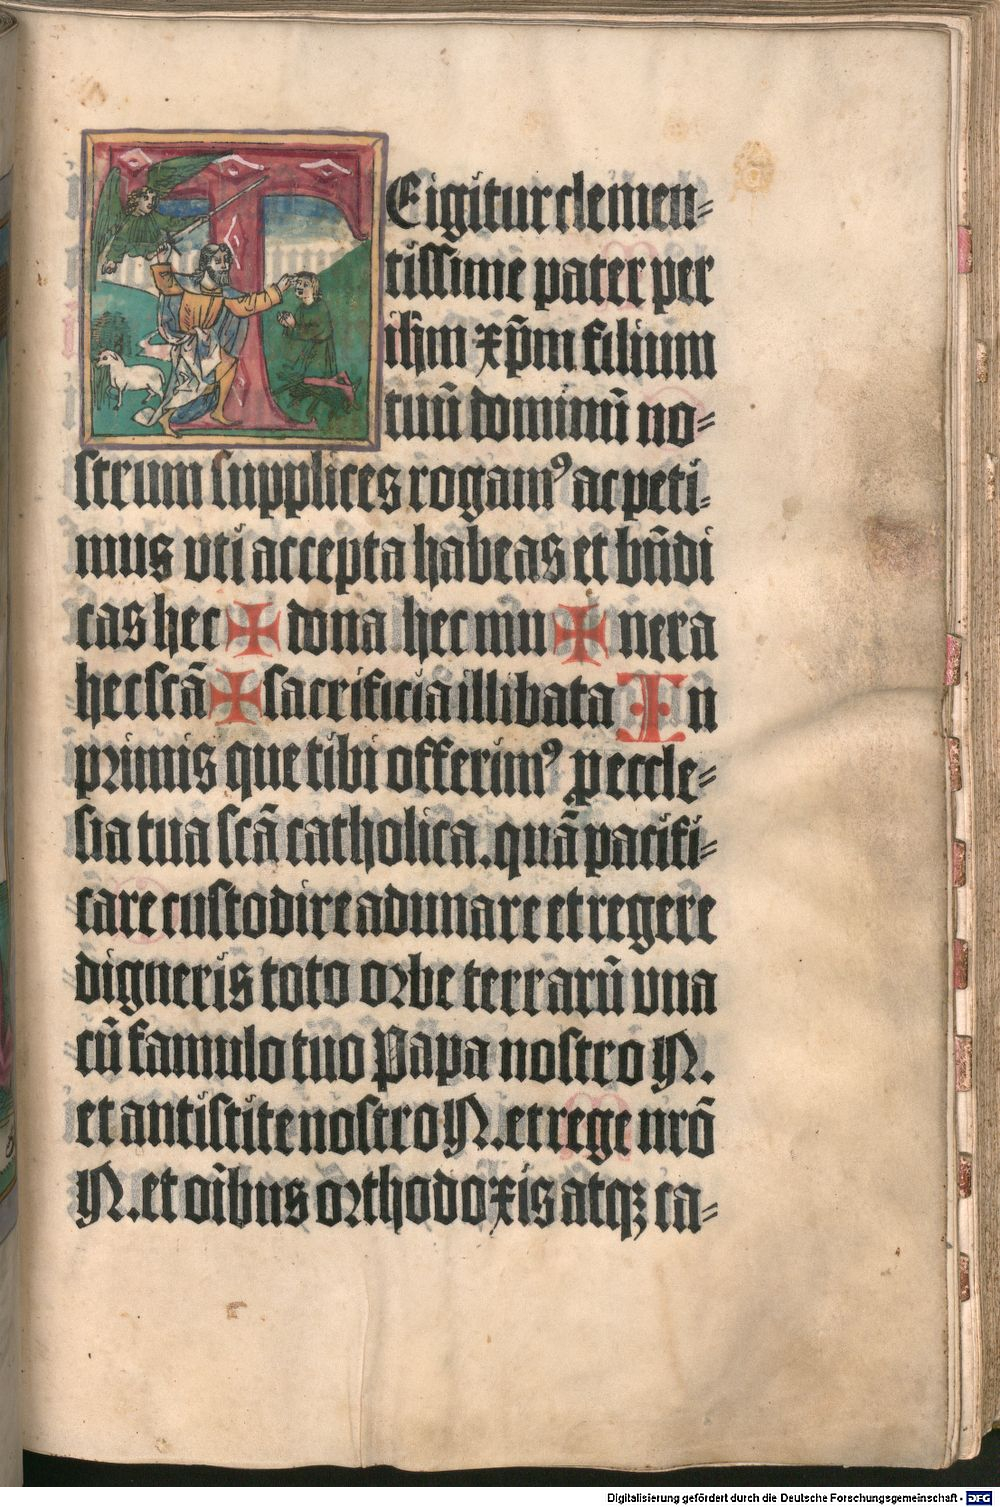 TE igitur clemen=
tissime pater per
ih̄m xp̄m filium
tuū dominū no=
strum supplices rogamꝰ ac peti-
mus vti accepta habeas et bn̄di
cas hec ✠ dona hec mu ✠ nera
hec scā ✠ sacrificia illibata In
primis que tibi offerimꝰ ꝓ eccle=
sia tua scā catholica. quā pacifi=
care custodire adunare et regere
digneris toto orbe terrarū vna
cū famulo tuo Papa nostro N.
et antistite nostro N. et rege nr̄o
N. et oībus orthodoxis atqꝫ ca=
Digitalisierung gefördert durch die Deutsche Forschungsgemeinschaft - DFG